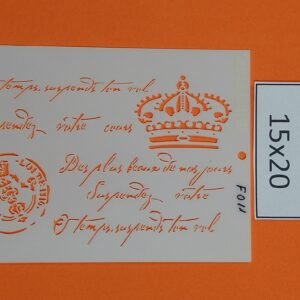 temps, suspends ton vol
spendez votre cours
Des plus beaux de mes jours
Suspendez votre
O temps, suspends ton vol
15x20
FO11